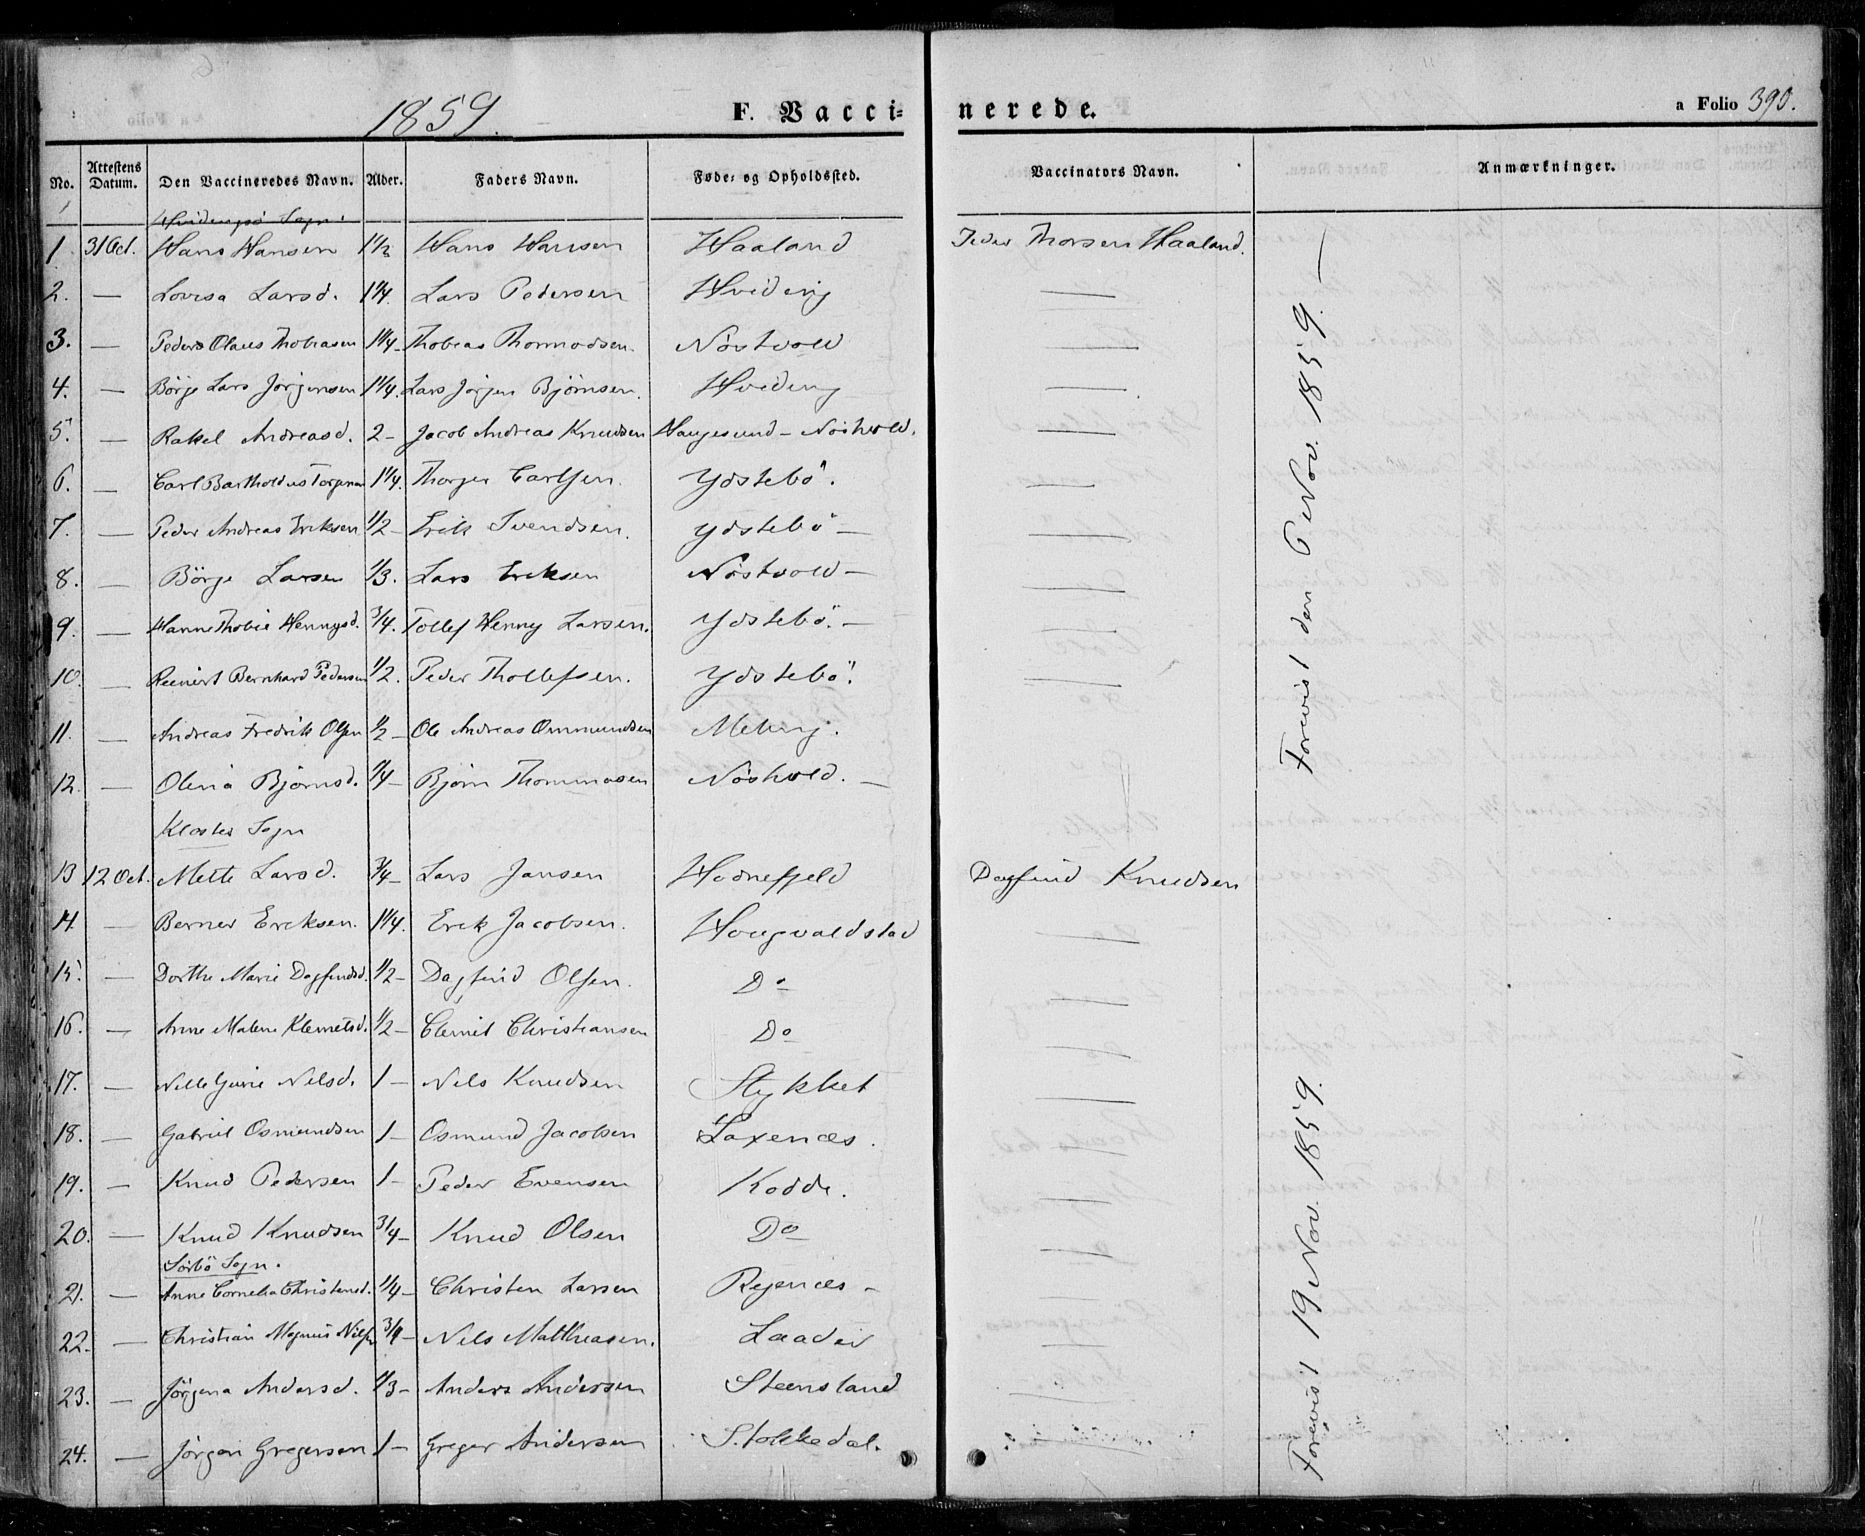 1859. F. Vacci= nerede. a Folio 390.
No. Attestens Datum. Den Vaccineredes Navn. Alder. Faders Navn. Føde= og Opholdssted. Vaccinators Navn. Anmærkninger.
Hvidingsö Sogn
1. 31 Oct. Hans Hansen 1 1/2 Hans Hansen Haaland Peder Thorsen Haaland.
2. — Lovisa Larsd. 1 1/4. Lars Pedersen Hviding —
3. — Peder Olaus Thobiasen 1 1/4 - Thobias Thormodsen. Nöstvold —
4. — Börge Lars Jörgensen 1 1/4. Lars Jörgen Björnsen. Hviding —
5. — Rakel Andreasd. 2 - Jacob Andreas Knudsen Haugesund - Nöstvold. —
6. — Carl Bartholdus Torgersen 1 1/4. Thorger Carlsen. Ydstebö. —
7. — Peder Andreas Eriksen 1/2 - Erik Svendsen. Ydstebö — —
8. — Börge Larsen 1/3. Lars Eriksen Nöstvold — —
9. — Hanne Thobie Hennysd. 3/4. Tollef Henny Larsen. Ydstebö. — —
10. — Reinert Bernhard Pedersen 1/2. Peder Thollefsen. Ydstebö. —
11. — Andreas Fredrik Olsen 1/2 - Ole Andreas Ommundsen Meling.
12. — Olena Björnsd. 1/4 - Björn Thommasen Nöstvold. —
Kloster Sogn
13 12 Oct. Mette Larsd. 3/4 - Lars Jansen Hodnefjeld Dagfind Knudsen
14 — Berner Ericksen. 1 1/4. Erik Jacobsen. Hougvaldstad —
15. — Dorthe Marie Dagfindsd. 1/2 - Dagfind Olsen. Do —
16. — Anne Malene Klemetsd. 1/2 - Clemet Christiansen Do —
17. — Nille Gurie Nilsd. 1 - Nils Knudsen Stykket —
18. — Gabriel Osmundsen 1 - Osmund Jacobsen Laxenæs. —
19. — Knud Pedersen 1 - Peder Evensen Kodde. —
20. — Knud Knudsen 3/4 - Knud Olsen Do —
Sörbö Sogn.
21. — Anne Cornelia Christensd. 1/4 - Christen Larsen Regenæs - —
22. — Christian Magnus Nilsen 3/4 - Nils Matthiasen. Laadei —
23. — Jörgena Andersd. 1/3 - Anders Andersen Steensland —
24. — Jörgen Gregersen 1 - Greger Andersen Stokkedal. —
Forevist den 6 Nov. 1859. —
Forevist 19 Nov. 1859.